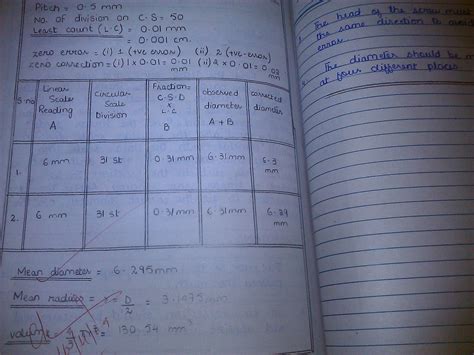 Pitch = 0.5 mm
No. of division on C.S = 50
Least count (L.C) = 0.01 mm
= 0.001 cm.
zero error = (i) 1 (+ve error) (ii) 2 (+ve error)
zero correction = (i) 1 x 0.01 = 0.01 mm (ii) 2 x 0.01 = 0.02 mm
S.no
Linear Scale Reading A
Circular Scale Division
Fraction= C.S.D x L.C B
observed diameter A + B
corrected diameter
1. 6 mm 31 st 0.31 mm 6.31 mm 6.3 mm
2. 6 mm 31 st 0.31 mm 6.31 mm 6.29 mm
Mean diameter = 6.295 mm
Mean radius = r = D/2 = 3.1475 mm
volume = 4/3 π r³ = 130.54 mm
1. The head of the screw must
the same direction to avoid
error.
2. The diameter should be m
at four different places.